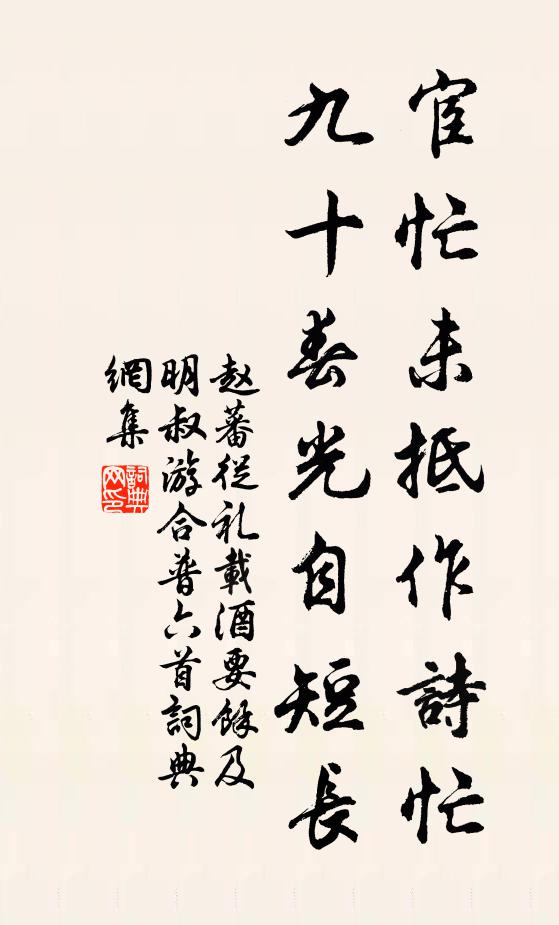 宦忙未抵作詩忙
九十春光自短長
赵蕃從礼載酒要餘及
明叔游合普六首詞典
網集
詞典網印